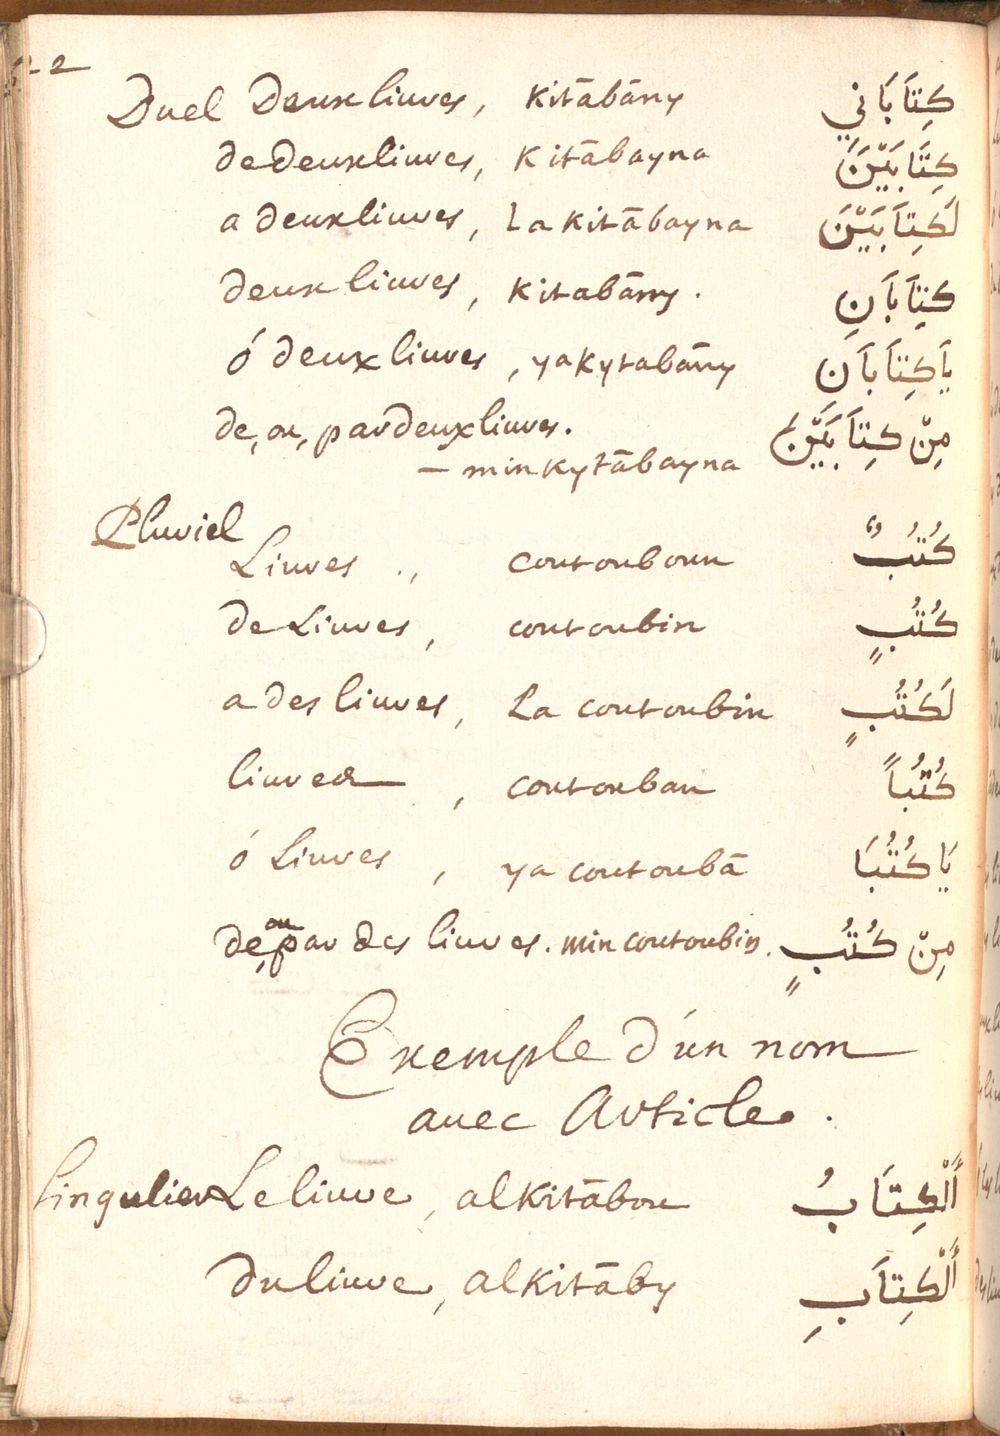 22
Duel Deux liures, Kitābāny كِتَابَانِي
de deux liures, Kitābayna كِتَابَيْنَ
a deux liures, La Kitābayna لَكِتَابَيْنَ
deux liures, Kitabāny. كِتَابَانِ
ó deux liures, ya Kytabāny يَاكِتَابَانِ
de, ou, par deux liures. مِنْ كِتَابَيْنَ
— min Kytābayna
Pluriel
Liures ., coutouboun كُتُبٌ
de Liures, coutoubin كُتُبٍ
a des liures, La coutoubin لَكُتُبٍ
liures, coutouban كُتُبًا
ó Liures, ya coutoubā يَاكُتُبَا
de, ou par des liures. min coutoubin. مِنْ كُتُبٍ
Exemple d'un nom
auec Article.
Singulier Le liure, alKitābou أَلْكِتَابُ
du liure, alKitāby أَلْكِتَابِ